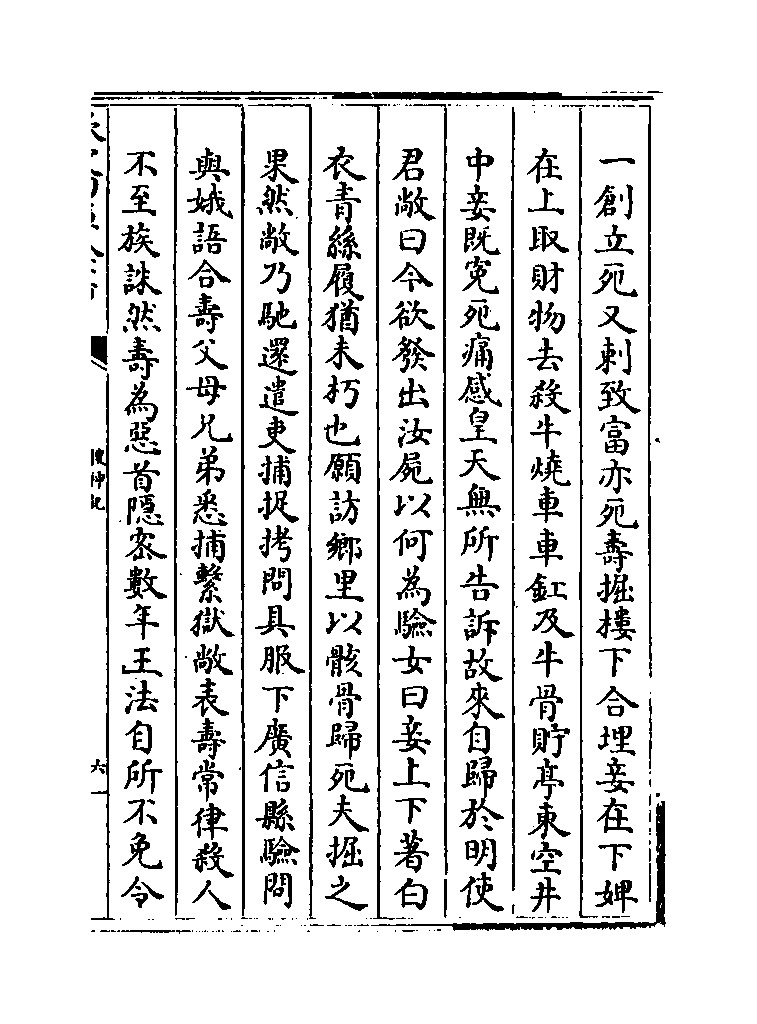 一創立死又刺致富亦死壽掘樓下合埋妾在下婢
在上取財物去殺牛燒車車釭及牛骨貯亭東空井
中妾既冤死痛感皇天無所告訴故來自歸於明使
君敞曰今欲發出汝屍以何為驗女曰妾上下著白
衣青絲履猶未朽也願訪鄉里以骸骨歸死夫掘之
果然敞乃馳還遣吏捕捉拷問具服下廣信縣驗問
與娥語合壽父母兄弟悉捕繫獄敞表壽常律殺人
不至族誅然壽為惡首隱宻數年王法自所不免令